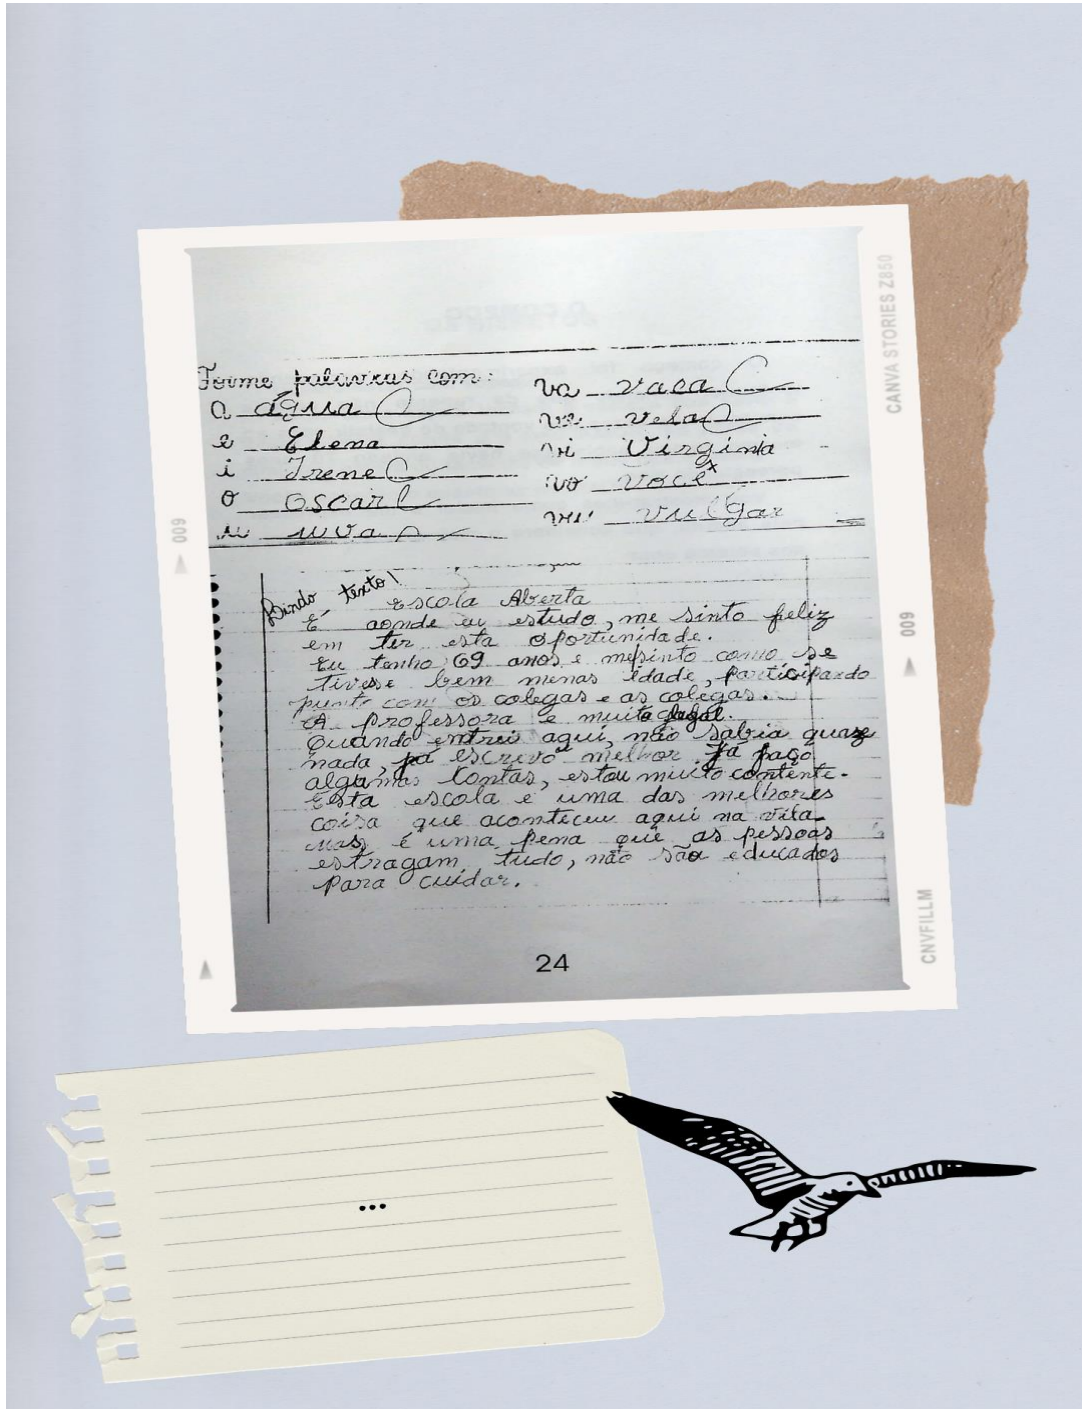 Forme palavras com:
a água
e Elena
i Irene
o oscar
u uva
va vaca
ve vela
vi Virginia
vo você
vu vulgar
Lindo texto!
Escola Aberta
E' aonde eu estudo, me sinto feliz
em ter esta oportunidade.
Eu tenho 69 anos e me sinto como se
tivese bem menas idade, participando
punto com os colegas e as colegas.
A professora e muito legal.
Quando entrei aqui, não sabia quaze
nada, já escrevo melhor. Já faço
algumas contas, estou muito contente.
Esta escola e uma das melhores
coisa que aconteceu aqui na vila
mas é uma pena que as pessoas
estragam tudo, não são educados
para cuidar.
24
...
CANVA STORIES Z850
009
009
CNVFILLM